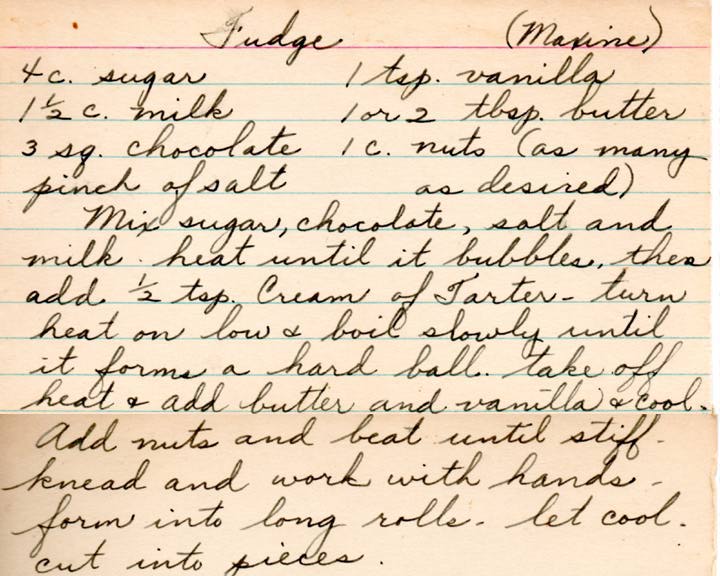 Fudge (Maxine)
4 c. sugar 1 tsp. vanilla
1 ½ c. milk 1 or 2 tbsp. butter
3 sq. chocolate 1 c. nuts (as many
pinch of salt as desired)
Mix sugar, chocolate, salt and
milk. heat until it bubbles, then
add ½ tsp. Cream of Tarter - turn
heat on low & boil slowly until
it forms a hard ball. take off
heat & add butter and vanilla & cool.
Add nuts and beat until stiff -
knead and work with hands -
form into long rolls - let cool.
cut into pieces.